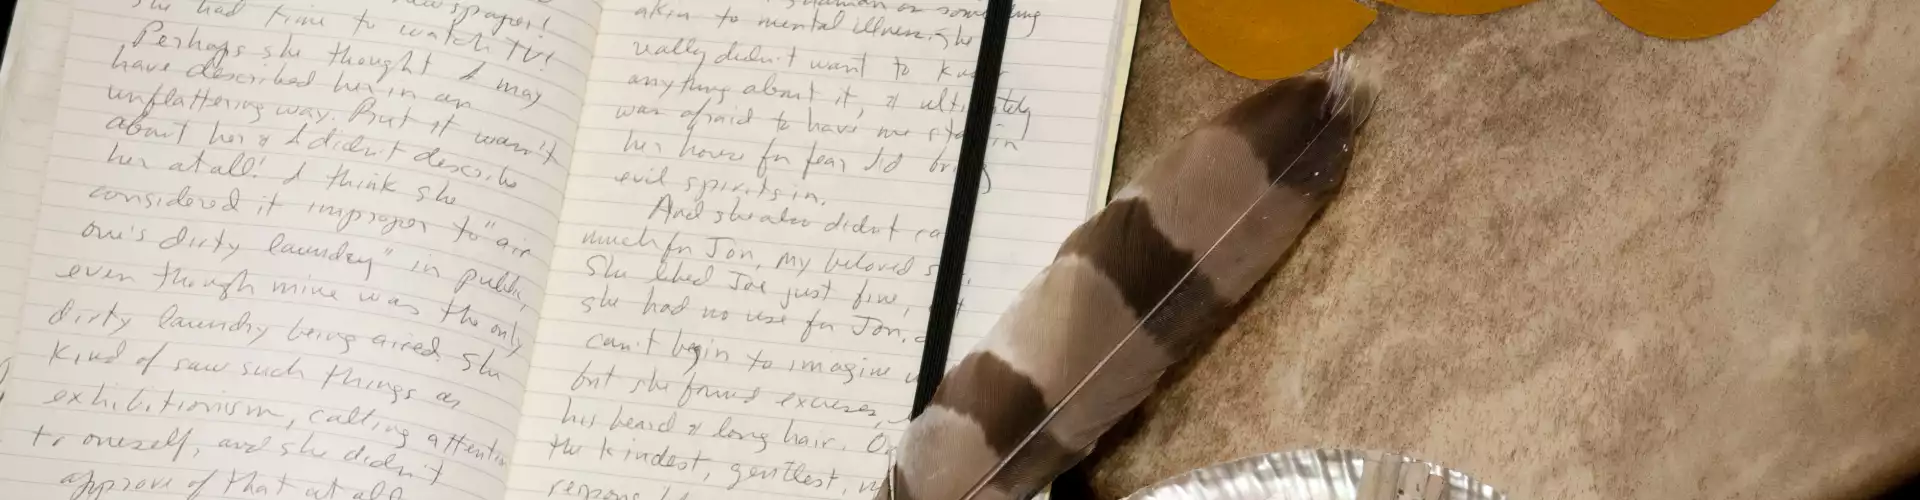 she had time to watch TV!
newspaper!
Perhaps she thought I may
have described her in an
unflattering way. But it wasn't
about her & I didn't describe
her at all! I think she
considered it improper to "air
one's dirty laundry" in public,
even though mine was the only
dirty laundry being aired. She
kind of saw such things as
exhibitionism, calling attention
to oneself, and she didn't
approve of that at all
akin to mental illness. She
really didn't want to know
anything about it, & ultimately
was afraid to have me stay in
her house for fear I'd bring
evil spirits in.
And she also didn't ca
much for Jon, my beloved s
She liked Joe just fine,
she had no use for Jon.
can't begin to imagine w
but she found excuses,
his beard & long hair. O
the kindest, gentlest,